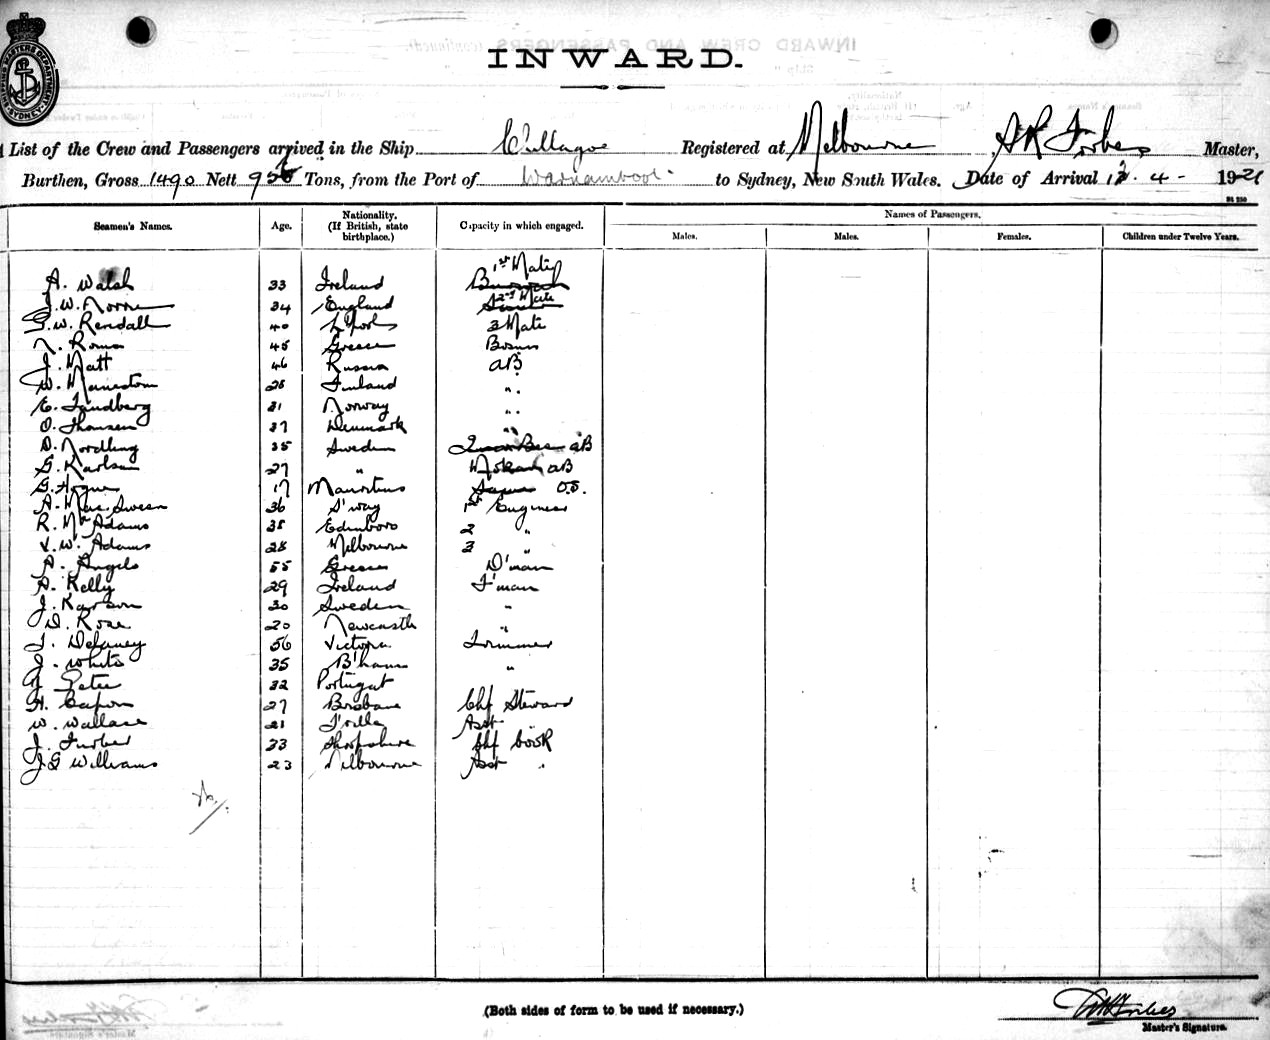 SHIPPING MASTERS DEPARTMENT SYDNEY
INWARD.
List of the Crew and Passengers arrived in the Ship Cullagoe Registered at Melbourne A R Forbes Master,
Burthen, Gross 1490 Nett Tons, from the Port of Warnambool to Sydney, New South Wales. Date of Arrival 4 - 1921
Seamen's Names. Age. Nationality. (If British, state birthplace.) Capacity in which engaged. Names of Passengers.
Males. Males. Females. Children under Twelve Years.
A. Walsh 33 Ireland 1st Mate
J. W. Norrie 34 England 2nd Mate
G. W. Rendall 40 L'pool 3 Mate
N. Roma 45 Greece Bosun
J. Matt 46 Russia AB
W. 28 Finland "
E. Sandberg 31 Norway "
O. Thansen 37 Denmark "
D. Nordling 35 Sweden AB
G. Karlsen 27 " AB
G. Hogue 17 Mauritius O.S.
A. Mac Sween 36 S'way 1st Engineer
R. Mc Adams 38 Edinboro 2 "
V. W. Adams 28 Melbourne 3 "
A. Angelo 55 Greece D'man
A. Kelly 29 Ireland F'man
J. Karlson 30 Sweden "
D. Rose 20 Newcastle "
T. Delaney 56 Victoria Trimmer
J. White 35 B'ham "
Peter 32 Portugal
H. Capon 27 Brisbane Chf Steward
W. Wallace 21 T'ville Asst
J. Furber 33 Shropshire Chf Cook
J G Williams 23 Melbourne Asst "
(Both sides of form to be used if necessary.)
Forbes
Master's Signature.